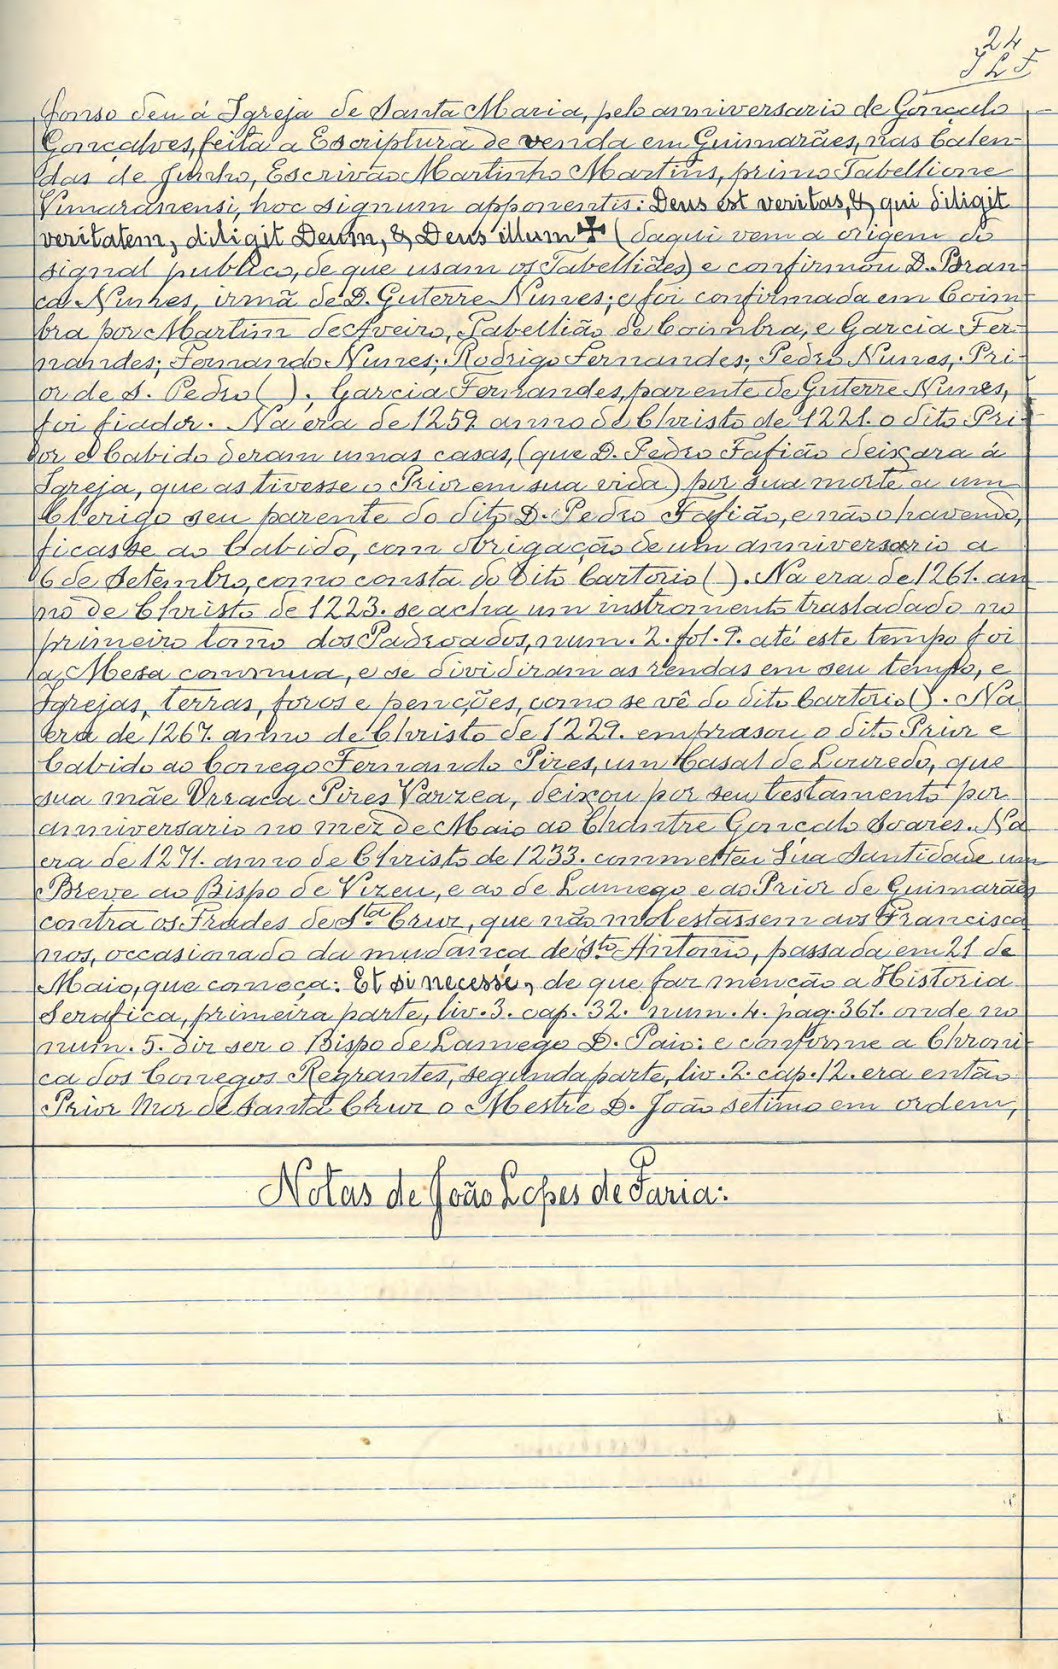 24
JLF
fonso deu á Igreja de Santa Maria, pelo anniversario de Gonçalo
Gonçalves, feita a Escriptura de venda em Guimarães, nas Calen-
das de Junho, Escrivão Martinho Martins, primo Tabellione
Vimaranensi, hoc signum apponentis: Deus est veritas, & qui diligit
veritatem, diligit Deum, & Deus illum ✠ (daqui vem a origem do
signal publico, de que usam os Tabelliães) e confirmou D. Bran-
ca Nunes, irmã de D. Guterre Nunes; e foi confirmada em Coim-
bra por Martim de Aveiro, Tabellião de Coimbra, e Garcia Fer-
nandes; Fernando Nunes; Rodrigo Fernandes; Pedro Nunes, Pri-
or de S. Pedro ( ). Garcia Fernandes, parente de Guterre Nunes,
foi fiador. Na era de 1259 anno de Christo de 1221. o dito Pri-
or e Cabido deram umas casas, (que D. Pedro Fafião deixara á
Igreja, que as tivesse o Prior em sua vida) por sua morte a um
Clerigo seu parente do dito D. Pedro Fafião, e não o havendo,
ficasse ao Cabido, com obrigação de um anniversario a
6 de Setembro, como consta do dito Cartorio ( ). Na era de 1261. an-
no de Christo de 1223. se acha um instromento trasladado no
primeiro tomo dos Padroados, num. 2. fol. 9. até este tempo foi
a Mesa commua, e se dividiram as rendas em seu tempo, e
Igrejas, terras, foros e penções, como se vê do dito Cartorio ( ). Na
era de 1267. anno de Christo de 1229. emprasou o dito Prior e
Cabido ao Conego Fernando Pires, um Casal de Louredo, que
sua mãe Urraca Pires Varzea, deixou por seu testamento por
anniversario no mez de Maio ao Chantre Gonçalo Soares. Na
era de 1271. anno de Christo de 1233. commetteu Sua Santidade um
Breve ao Bispo de Vizeu, e ao de Lamego e ao Prior de Guimarães
contra os Frades de Sta Cruz, que não molestassem aos Francisca-
nos, occasionado da mudança de Sto Antonio, passada em 21 de
Maio, que começa: Et si necesse, de que faz menção a Historia
Serafica, primeira parte, liv. 3. cap. 32. num. 4. pag. 361. onde no
num. 5. diz ser o Bispo de Lamego D. Paio: e conforme a Chroni-
ca dos Conegos Regrantes, segunda parte, liv. 2. cap. 12. era então
Prior Mor de Santa Cruz o Mestre D. João setimo em ordem,
Notas de João Lopes de Faria: